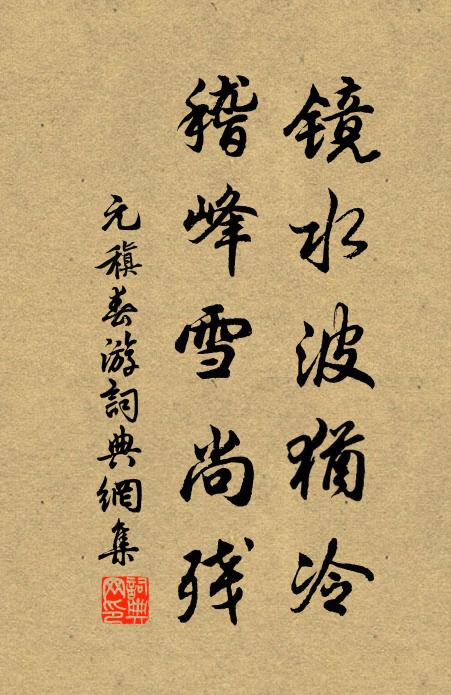 镜水波犹冷
稽峰雪尚残
元稹春游词典網集
詞典网印